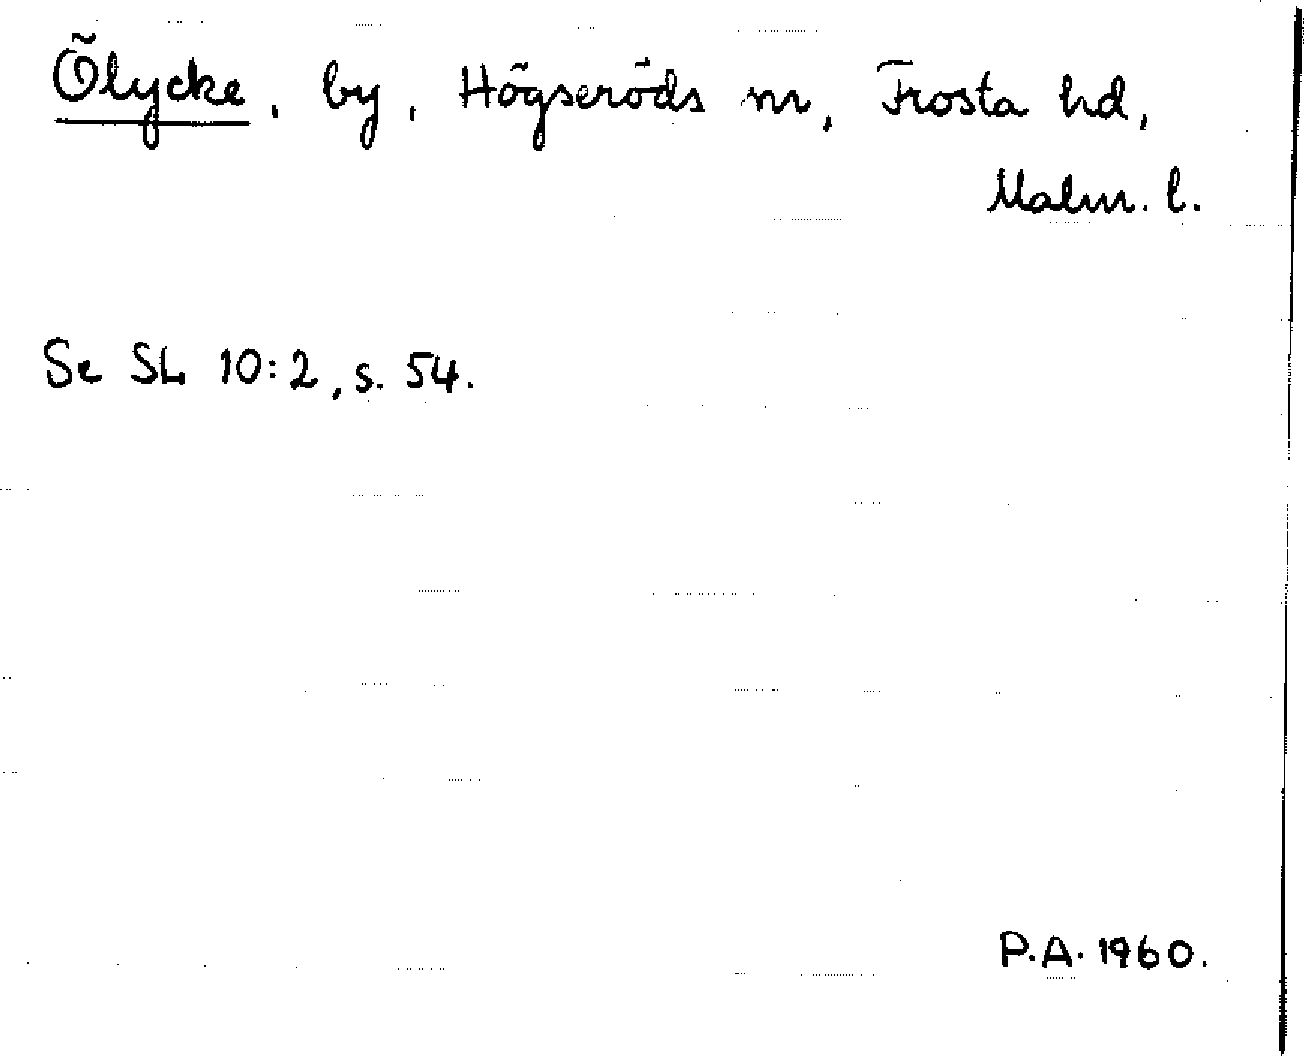 Ölycke, by, Högseröds sn, Frosta hd,
Malm. l.
Se SL 10:2, s. 54.
P.A. 1960.